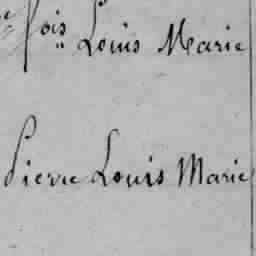 fois Louis Marie
Pierre Louis Marie